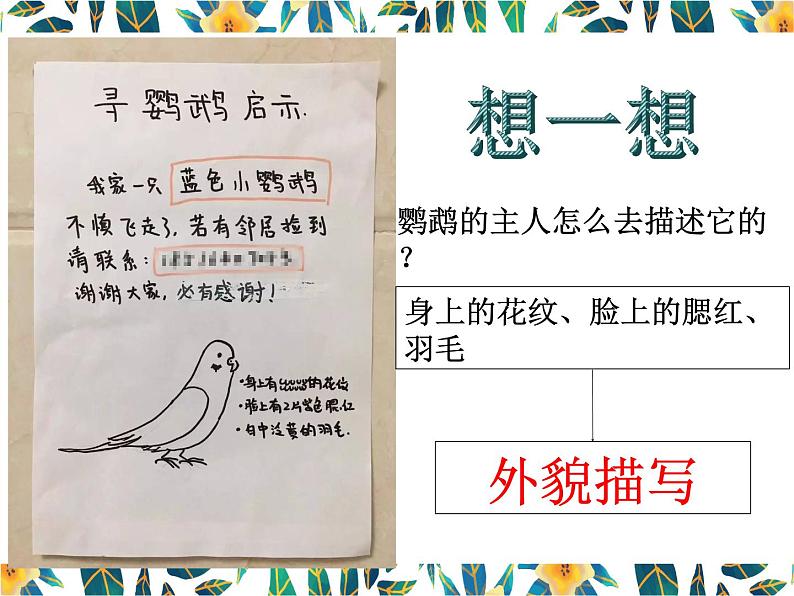 寻鹦鹉启示.
我家一只 蓝色小鹦鹉
不慎飞走了, 若有邻居捡到
请联系:
谢谢大家, 必有感谢!
·身上有的花纹
·脸上有2片紫色腮红
·白中泛黄的羽毛.
想一想
鹦鹉的主人怎么去描述它的
?
身上的花纹、脸上的腮红、
羽毛
外貌描写